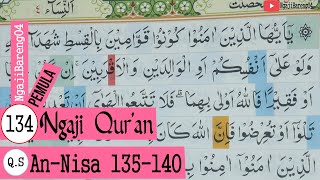 NgajiBareng04
النساء ٤
يٰٓاَيُّهَا الَّذِيْنَ اٰمَنُوْا كُوْنُوْا قَوَّامِيْنَ بِالْقِسْطِ شُهَدَاۤءَ
وَلَوْ عَلٰٓى اَنْفُسِكُمْ اَوِ الْوَالِدَيْنِ وَالْاَقْرَبِيْنَ اِنْ
اَوْ فَقِيْرًا فَاللّٰهُ اَوْلٰى بِهِمَاۗ فَلَا تَتَّبِعُوا الْهَوٰٓى
تَلْوٗٓا اَوْ تُعْرِضُوْا فَاِنَّ اللّٰهَ كَانَ
الَّذِيْنَ اٰمَنُوْٓا اٰمِنُوْا
PEMULA
134 Ngaji Qur'an
Q.S An-Nisa 135-140